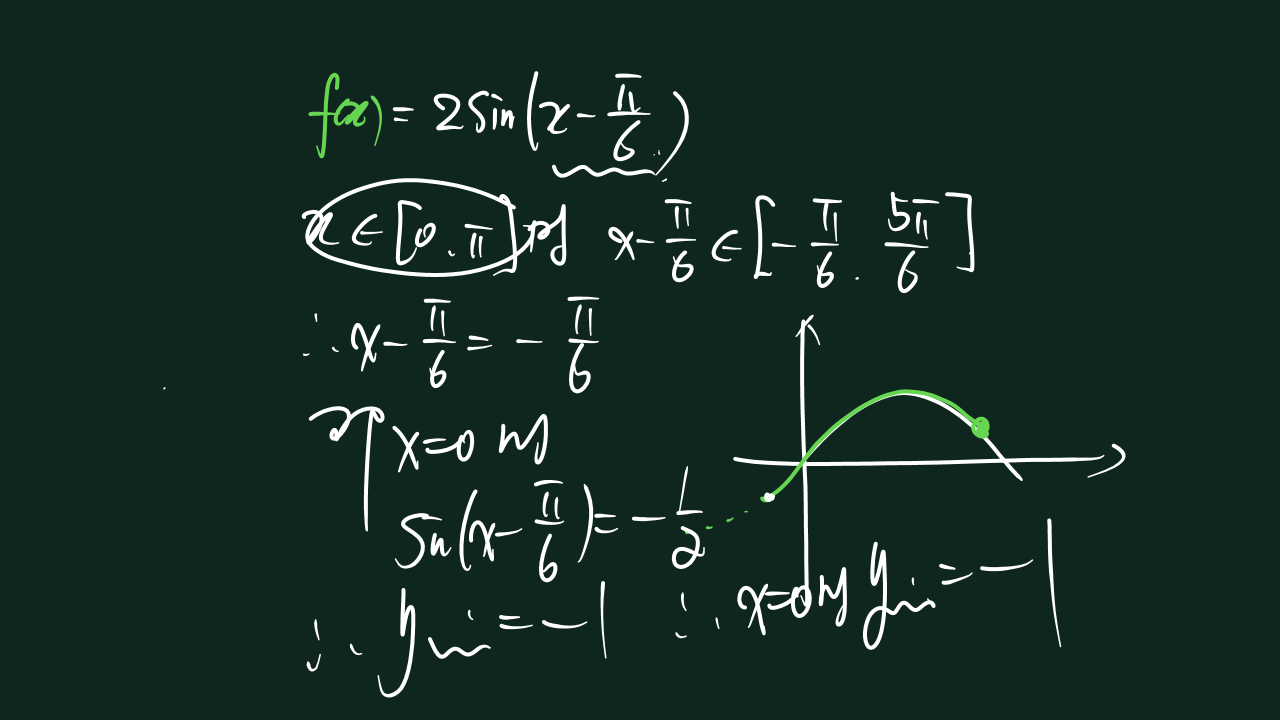 f(x) = 2sin(x - π/6)
x ∈ [0. π] 时 x - π/6 ∈ [-π/6 . 5π/6]
∴ x - π/6 = - π/6
即 x=0 时
sin(x - π/6) = - 1/2
∴ ymin = -1 ∴ x=0时 ymin = -1